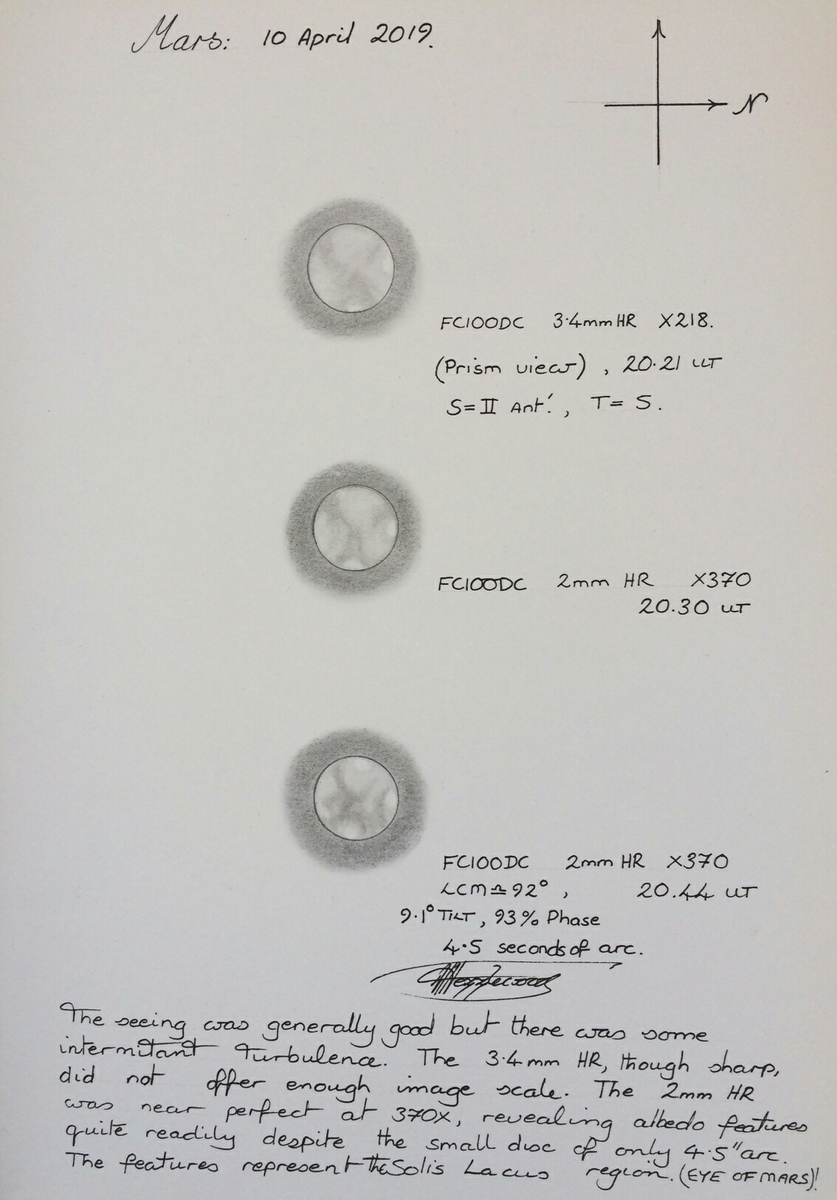 Mars: 10 April 2019.
N
FC100DC 3.4mm HR X218.
(Prism view), 20.21 UT
S=II Ant!, T= S.
FC100DC 2mm HR X370
20.30 UT
FC100DC 2mm HR X370
LCM≏92°, 20.44 UT
9.1° TILT, 93% Phase
4.5 seconds of arc.
The seeing was generally good but there was some
intermitant turbulence. The 3.4mm HR, though sharp,
did not offer enough image scale. The 2mm HR
was near perfect at 370X, revealing albedo features
quite readily despite the small disc of only 4.5" arc.
The features represent the Solis Lacus region. (EYE OF MARS)!